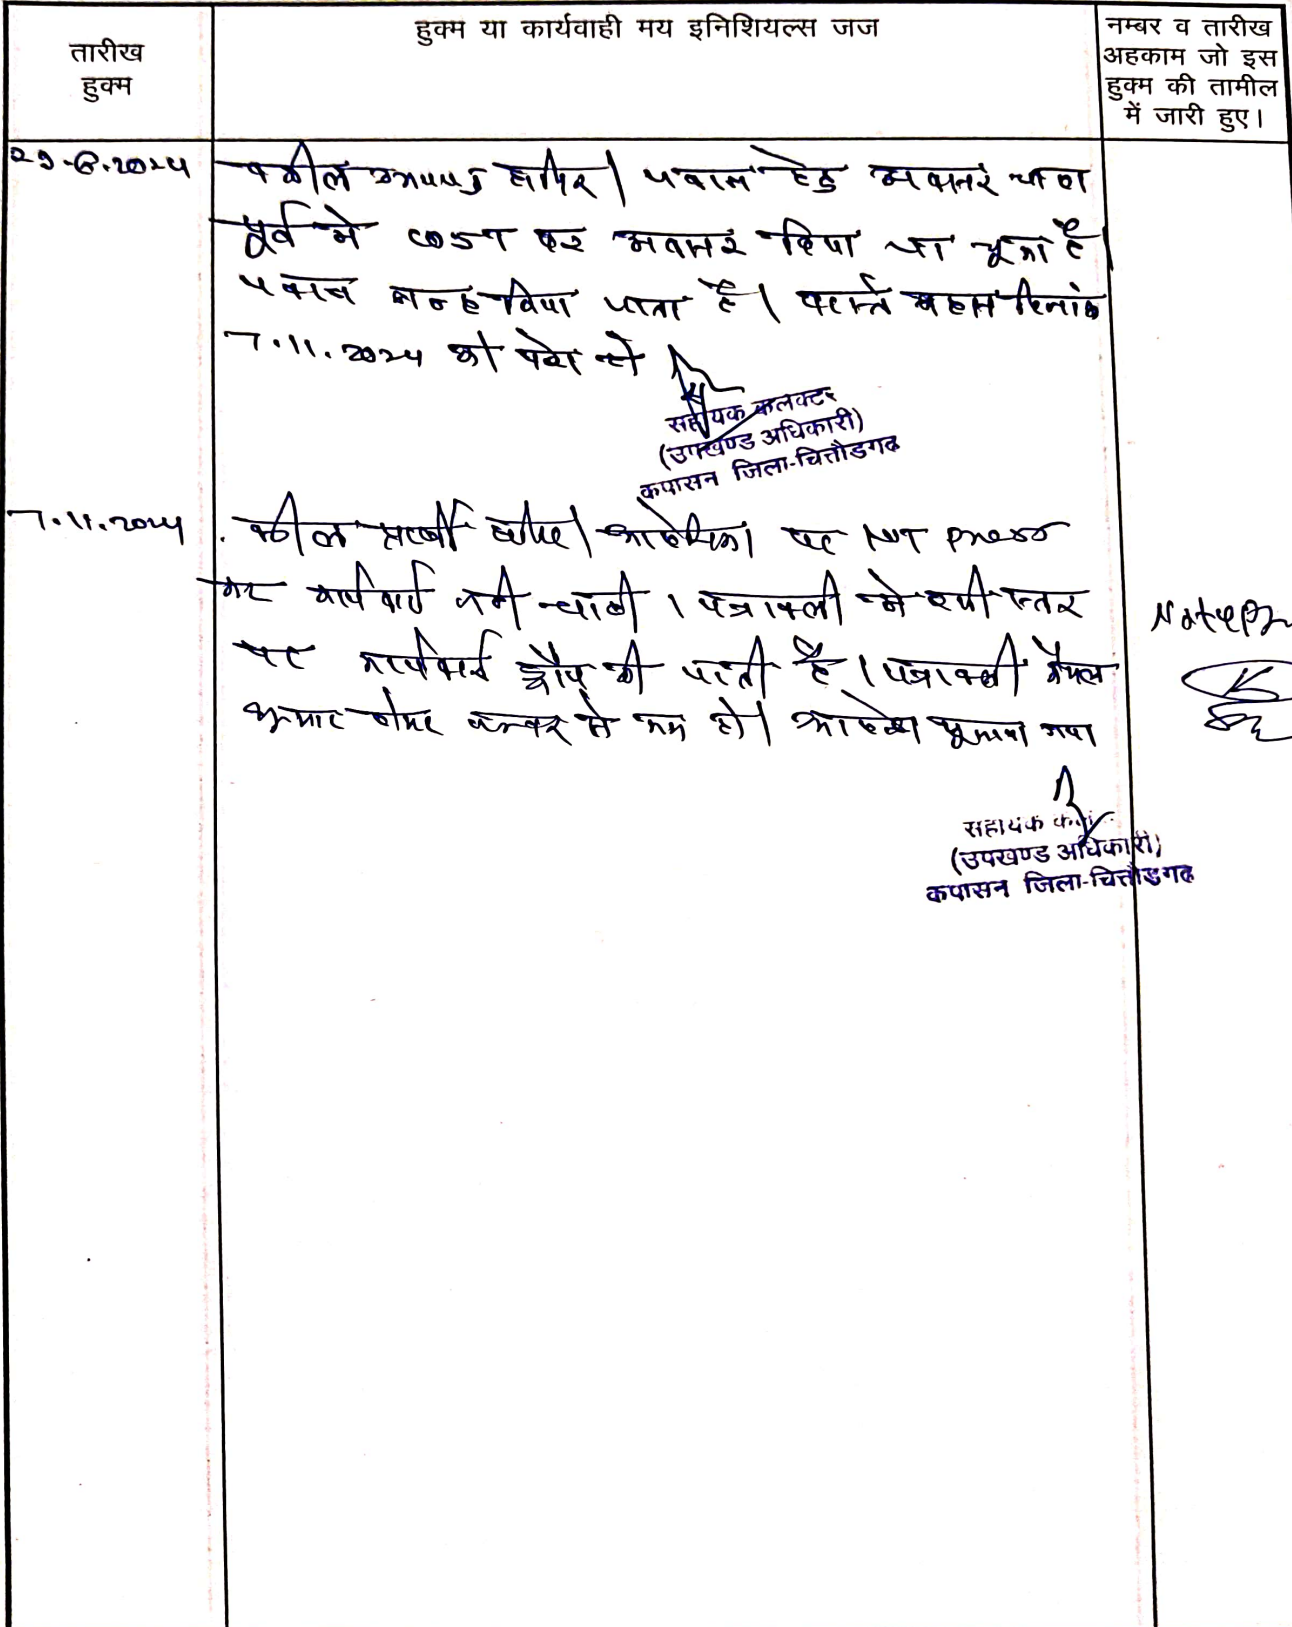 तारीख
हुक्म
हुक्म या कार्यवाही मय इनिशियल्स जज
नम्बर व तारीख
अहकाम जो इस
हुक्म की तामील
में जारी हुए।
वकील उभयपक्ष हाजिर। जवाब हेतु अवसर चाहा
पूर्व मे COST पर अवसर दिया जा चुका है
जवाब बन्द किया जाता है। वास्ते बहस दिनांक
7.11.2024 को पेश हो
सहायक कलक्टर
(उपखण्ड अधिकारी)
कपासन जिला-चित्तौडगढ
7.11.2024
वकील प्रार्थी हाजिर। पर NOT press
कर कार्यवाही नही चाही। पत्रावली मे इसी स्तर
पर कार्यवाही ड्रॉप की जाती है। पत्रावली फैसल
शुमार होकर नम्बर से कम हो। आदेश सुनाया गया
सहायक
(उपखण्ड अधिकारी)
कपासन जिला-चित्तौडगढ